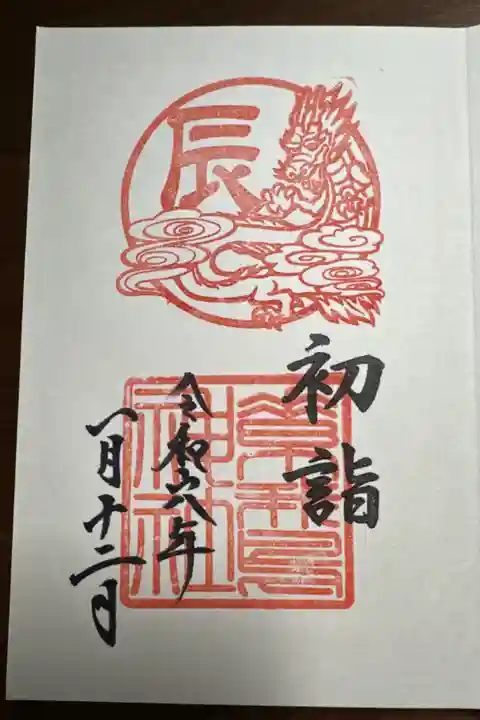 辰
初詣
令和六年
一月十二日